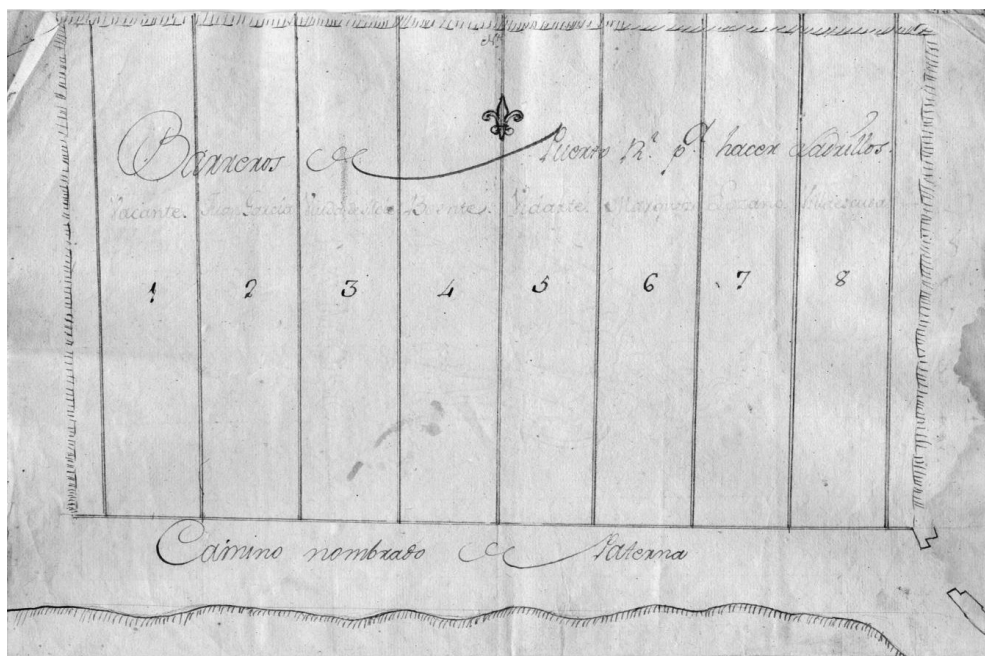 Barreros de Puerto R.l p.a hacer Ladrillos.
Vacante. Juan Garcia Viuda de Benites. Vidarte. Lozano
1 2 3 4 5 6 7 8
Camino nombrado de Paterna